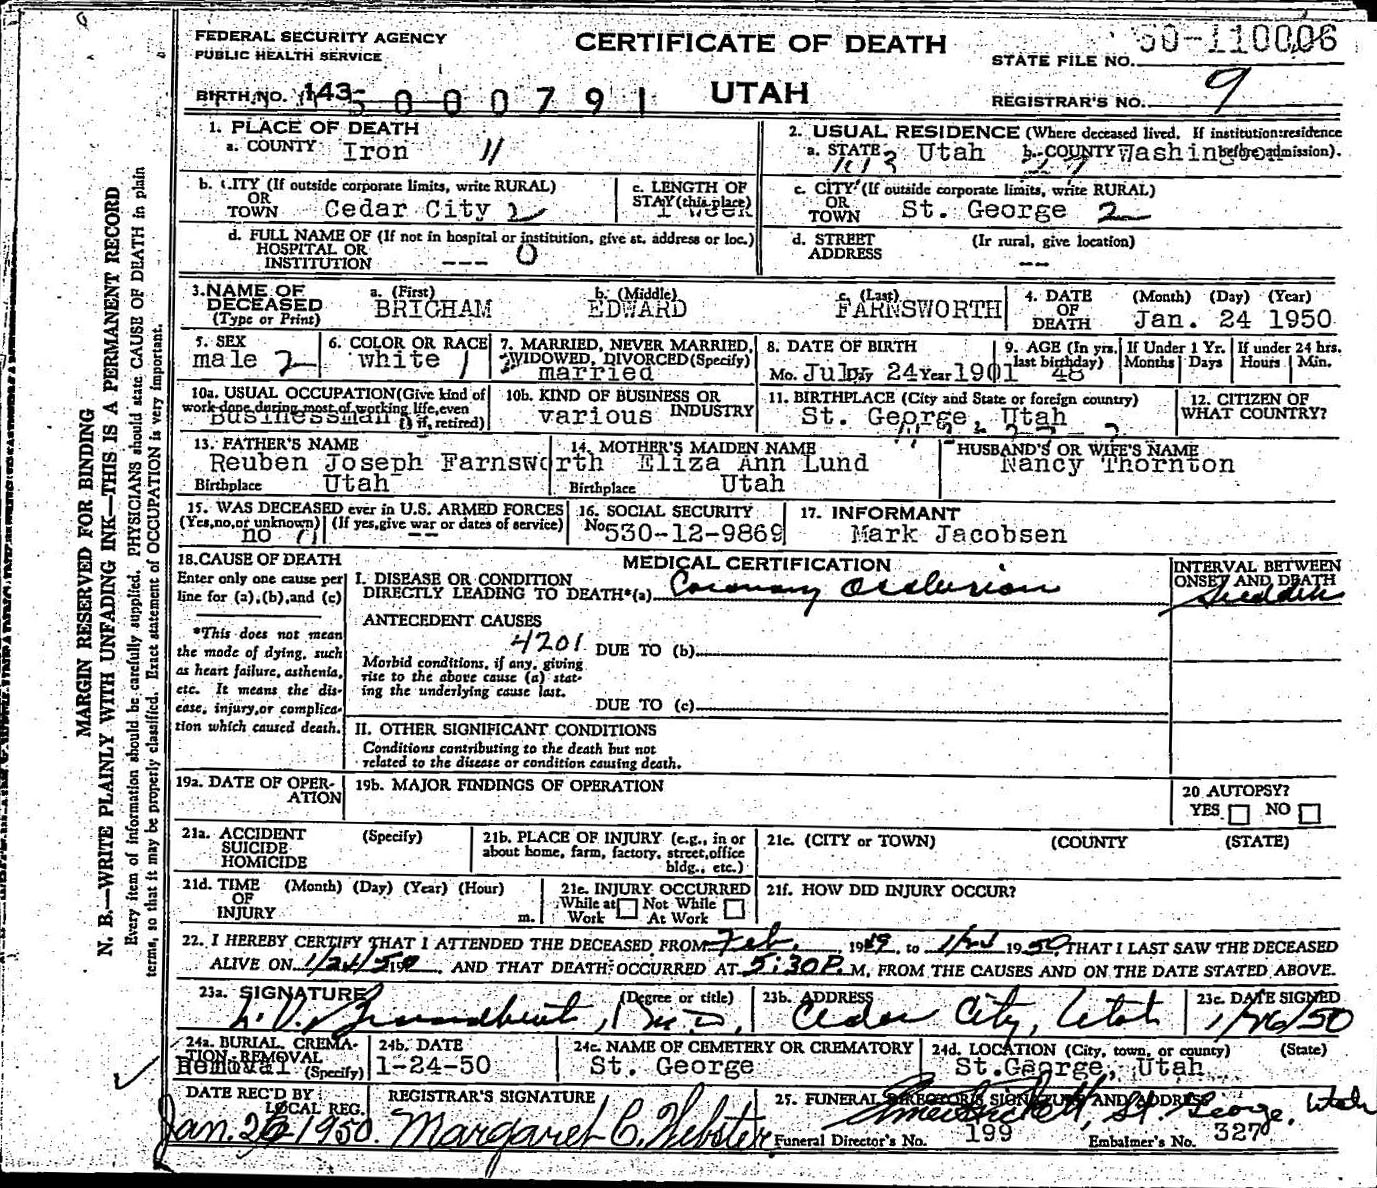 FEDERAL SECURITY AGENCY
PUBLIC HEALTH SERVICE
CERTIFICATE OF DEATH
UTAH
STATE FILE NO. 50-110006
REGISTRAR'S NO. 9
BIRTH NO. 143- 5 0 0 0 0 7 9 1
1. PLACE OF DEATH
a. COUNTY Iron 11
b. CITY (If outside corporate limits, write RURAL)
OR
TOWN Cedar City 2
c. LENGTH OF
STAY (this place)
1 week
d. FULL NAME OF (If not in hospital or institution, give st. address or loc.)
HOSPITAL OR
INSTITUTION --- 0
2. USUAL RESIDENCE (Where deceased lived. If institution:residence
before admission).
a. STATE Utah b. COUNTY Washington
27
c. CITY (If outside corporate limits, write RURAL)
OR
TOWN St. George 2
d. STREET (Ir rural, give location)
ADDRESS --
3. NAME OF DECEASED
(Type or Print)
a. (First) BRIGHAM
b. (Middle) EDWARD
c. (Last) FARNSWORTH
4. DATE OF DEATH (Month) (Day) (Year)
Jan. 24 1950
5. SEX
male 2
6. COLOR OR RACE
white 1
7. MARRIED, NEVER MARRIED,
WIDOWED, DIVORCED (Specify)
married
8. DATE OF BIRTH
Mo. July Day 24 Year 1901
9. AGE (In yrs. last birthday) 48
If Under 1 Yr. Months Days
If under 24 hrs. Hours Min.
10a. USUAL OCCUPATION (Give kind of
work done during most of working life, even
if, retired)
Businessman
10b. KIND OF BUSINESS OR
INDUSTRY
various
11. BIRTHPLACE (City and State or foreign country)
St. George, Utah
12. CITIZEN OF
WHAT COUNTRY?
13. FATHER'S NAME
Reuben Joseph Farnsworth
Birthplace Utah
14. MOTHER'S MAIDEN NAME
Eliza Ann Lund
Birthplace Utah
HUSBAND'S OR WIFE'S NAME
Nancy Thornton
15. WAS DECEASED ever in U.S. ARMED FORCES
(Yes, no, or unknown) (If yes, give war or dates of service)
no --
16. SOCIAL SECURITY
No. 530-12-9869
17. INFORMANT
Mark Jacobsen
18. CAUSE OF DEATH
Enter only one cause per
line for (a), (b), and (c)
*This does not mean
the mode of dying, such
as heart failure, asthenia,
etc. It means the dis-
ease, injury, or complica-
tion which caused death.
MEDICAL CERTIFICATION
I. DISEASE OR CONDITION
DIRECTLY LEADING TO DEATH*(a) Coronary Occlusion
INTERVAL BETWEEN
ONSET AND DEATH
Sudden
ANTECEDENT CAUSES
4201
DUE TO (b)
Morbid conditions, if any, giving
rise to the above cause (a) stat-
ing the underlying cause last.
DUE TO (c)
II. OTHER SIGNIFICANT CONDITIONS
Conditions contributing to the death but not
related to the disease or condition causing death.
19a. DATE OF OPER-
ATION
19b. MAJOR FINDINGS OF OPERATION
20 AUTOPSY?
YES NO
21a. ACCIDENT (Specify)
SUICIDE
HOMICIDE
21b. PLACE OF INJURY (e.g., in or
about home, farm, factory, street, office
bldg., etc.)
21c. (CITY or TOWN) (COUNTY (STATE)
21d. TIME (Month) (Day) (Year) (Hour)
OF
INJURY m.
21e. INJURY OCCURRED
While at Work Not While At Work
21f. HOW DID INJURY OCCUR?
22. I HEREBY CERTIFY THAT I ATTENDED THE DECEASED FROM Feb. 1949, to 1/24 1950, THAT I LAST SAW THE DECEASED
ALIVE ON 1/24/50, AND THAT DEATH OCCURRED AT 5:30 P. M, FROM THE CAUSES AND ON THE DATE STATED ABOVE.
23a. SIGNATURE (Degree or title)
L. V. Broadbent, M.D.
23b. ADDRESS
Cedar City, Utah
23c. DATE SIGNED
1/26/50
24a. BURIAL, CREMA-
TION, REMOVAL
(Specify)
Removal
24b. DATE
1-24-50
24c. NAME OF CEMETERY OR CREMATORY
St. George
24d. LOCATION (City, town, or county) (State)
St. George, Utah
DATE REC'D BY
LOCAL REG.
Jan. 26 1950.
REGISTRAR'S SIGNATURE
Margaret C. Webster
25. FUNERAL DIRECTOR'S SIGNATURE AND ADDRESS
St George, Utah
Funeral Director's No. 199 Embalmer's No. 327
MARGIN RESERVED FOR BINDING
N. B.—WRITE PLAINLY WITH UNFADING INK—THIS IS A PERMANENT RECORD
Every item of information should be carefully supplied. PHYSICIANS should state CAUSE OF DEATH in plain
terms, so that it may be properly classified. Exact statement of OCCUPATION is very important.